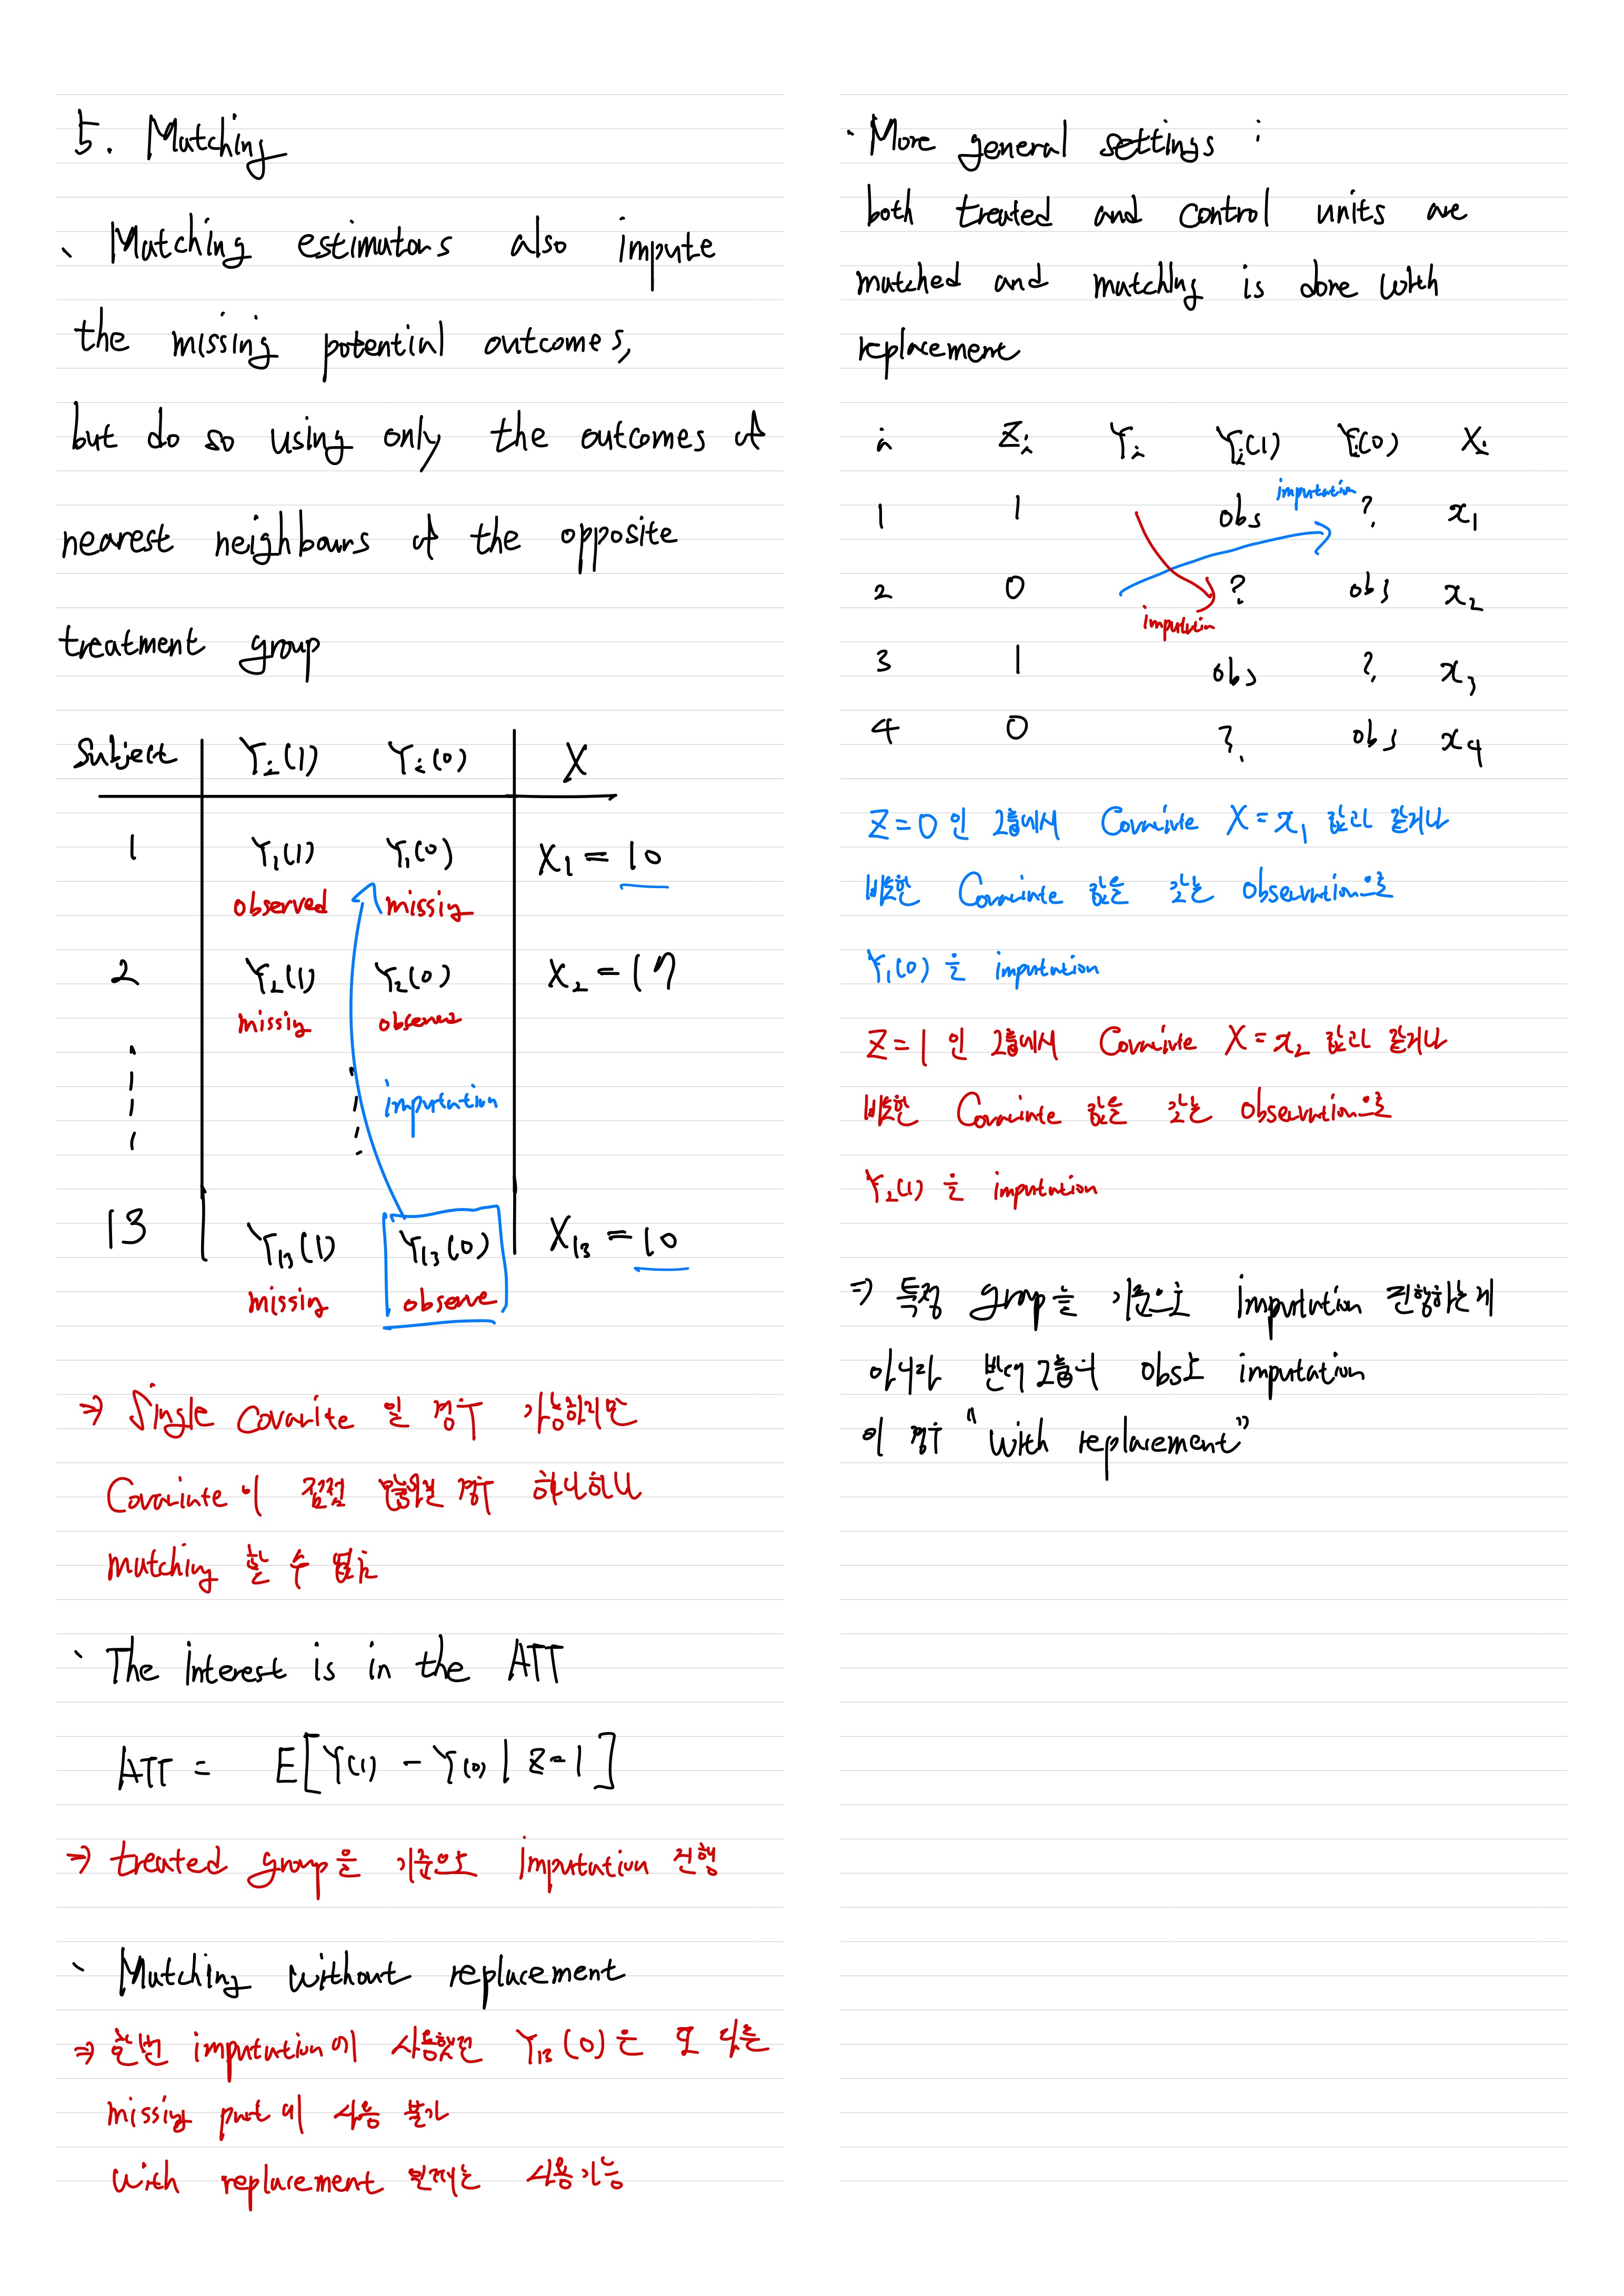 5. Matching
Matching estimators also impute
the missing potential outcomes,
but do so using only the outcomes of
nearest neighbours of the opposite
treatment group
Subject Yi(1) Yi(0) X
1 Y1(1) Y1(0) X1 = 10
observed missing
2 Y2(1) Y2(0) X2 = 17
missing observed
imputation
13 Y13(1) Y13(0) X13 = 10
missing observe
⇒ Single Covarite 일 경우 가능하지만
Covariate이 점점 많아질 경우 하나하나
matching 할 수 없음
The interest is in the ATT
ATT = E[Y(1) - Y(0) | Z=1]
⇒ treated group을 기준으로 imputation 진행
Matching without replacement
⇒ 한번 imputation에 사용했던 Y13(0)은 또 다른
missing part에 사용 불가
with replacement 문제는 사용가능
· More general settings :
both treated and control units are
matched and matching is done with
replacement
i Zi Yi Yi(1) Yi(0) Xi
imputation
1 1 obs ? x1
2 0 ? obs x2
imputation
3 1 obs ? x3
4 0 ? obs x4
Z=0 인 그룹에서 Covariate X=x1 값과 같거나
비슷한 Covariate 값을 갖는 observation으로
Y1(0) 을 imputation
Z=1 인 그룹에서 Covariate X=x2 값과 같거나
비슷한 Covariate 값을 갖는 observation으로
Y2(1) 을 imputation
⇒ 특정 group을 기준으로 imputation 진행하는게
아니라 반대그룹의 obs로 imputation
이 경우 "with replacement"